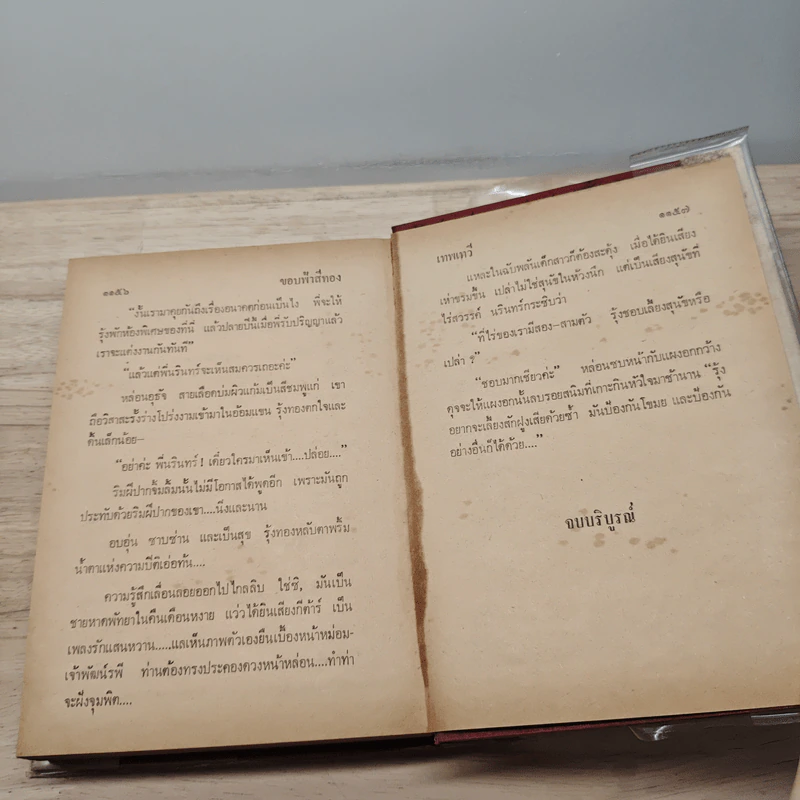 ๑๑๕๖
ขอบฟ้าสีทอง
"งั้นเรามาคุยกันถึงเรื่องอนาคตก่อนเป็นไง พี่จะให้
รุ้งพักห้องพิเศษของที่นี่ แล้วปลายปีนี้เมื่อพี่รับปริญญาแล้ว
เราจะแต่งงานกันทันที"
"แล้วแต่พี่นรินทร์จะเห็นสมควรเถอะค่ะ"
หล่อนอุธัจ สายเลือดบ่มผิวแก้มเป็นสีชมพูแก่ เขา
ถือวิสาสะรั้งร่างโปร่งงามเข้ามาในอ้อมแขน รุ้งทองตกใจและ
ดิ้นเล็กน้อย—
"อย่าค่ะ พี่นรินทร์! เดี๋ยวใครมาเห็นเข้า....ปล่อย...."
ริมฝีปากจิ้มลิ้มนั้นไม่มีโอกาสได้พูดอีก เพราะมันถูก
ประทับด้วยริมฝีปากของเขา....นิ่งและนาน
อบอุ่น ซาบซ่าน และเป็นสุข รุ้งทองหลับตาพริ้ม
น้ำตาแห่งความปีติเอ่อท้น....
ความรู้สึกเลื่อนลอยออกไปไกลลิบ ใช่ซิ, มันเป็น
ชายหาดพัทยาในคืนเดือนหงาย แว่วได้ยินเสียงกีต้าร์ เป็น
เพลงรักแสนหวาน.....แลเห็นภาพตัวเองยืนเบื้องหน้าหม่อม-
เจ้าพัฒน์รพี ท่านต้องทรงประคองดวงหน้าหล่อน....ทำท่า
จะฝังจุมพิต....
เทพเทวี
๑๑๕๗
และในฉับพลันเด็กสาวก็ต้องสะดุ้ง เมื่อได้ยินเสียง
เห่าขรมขึ้น เปล่าไม่ใช่สุนัขในห้วงนึก แต่เป็นเสียงสุนัขที่
ไร่สวรรค์ นรินทร์กระซิบว่า
"ที่ไร่ของเรามีสอง-สามตัว รุ้งชอบเลี้ยงสุนัขหรือ
เปล่า ?"
"ชอบมากเชียวค่ะ" หล่อนซบหน้ากับแผงอกกว้าง
ดุจจะให้แผงอกนั้นลบรอยสนิมที่เกาะกินหัวใจมาช้านาน "รุ้ง
อยากจะเลี้ยงสักฝูงเสียด้วยซ้ำ มันป้องกันโขมย และป้องกัน
อย่างอื่นก็ได้ด้วย...."
จบบริบูรณ์